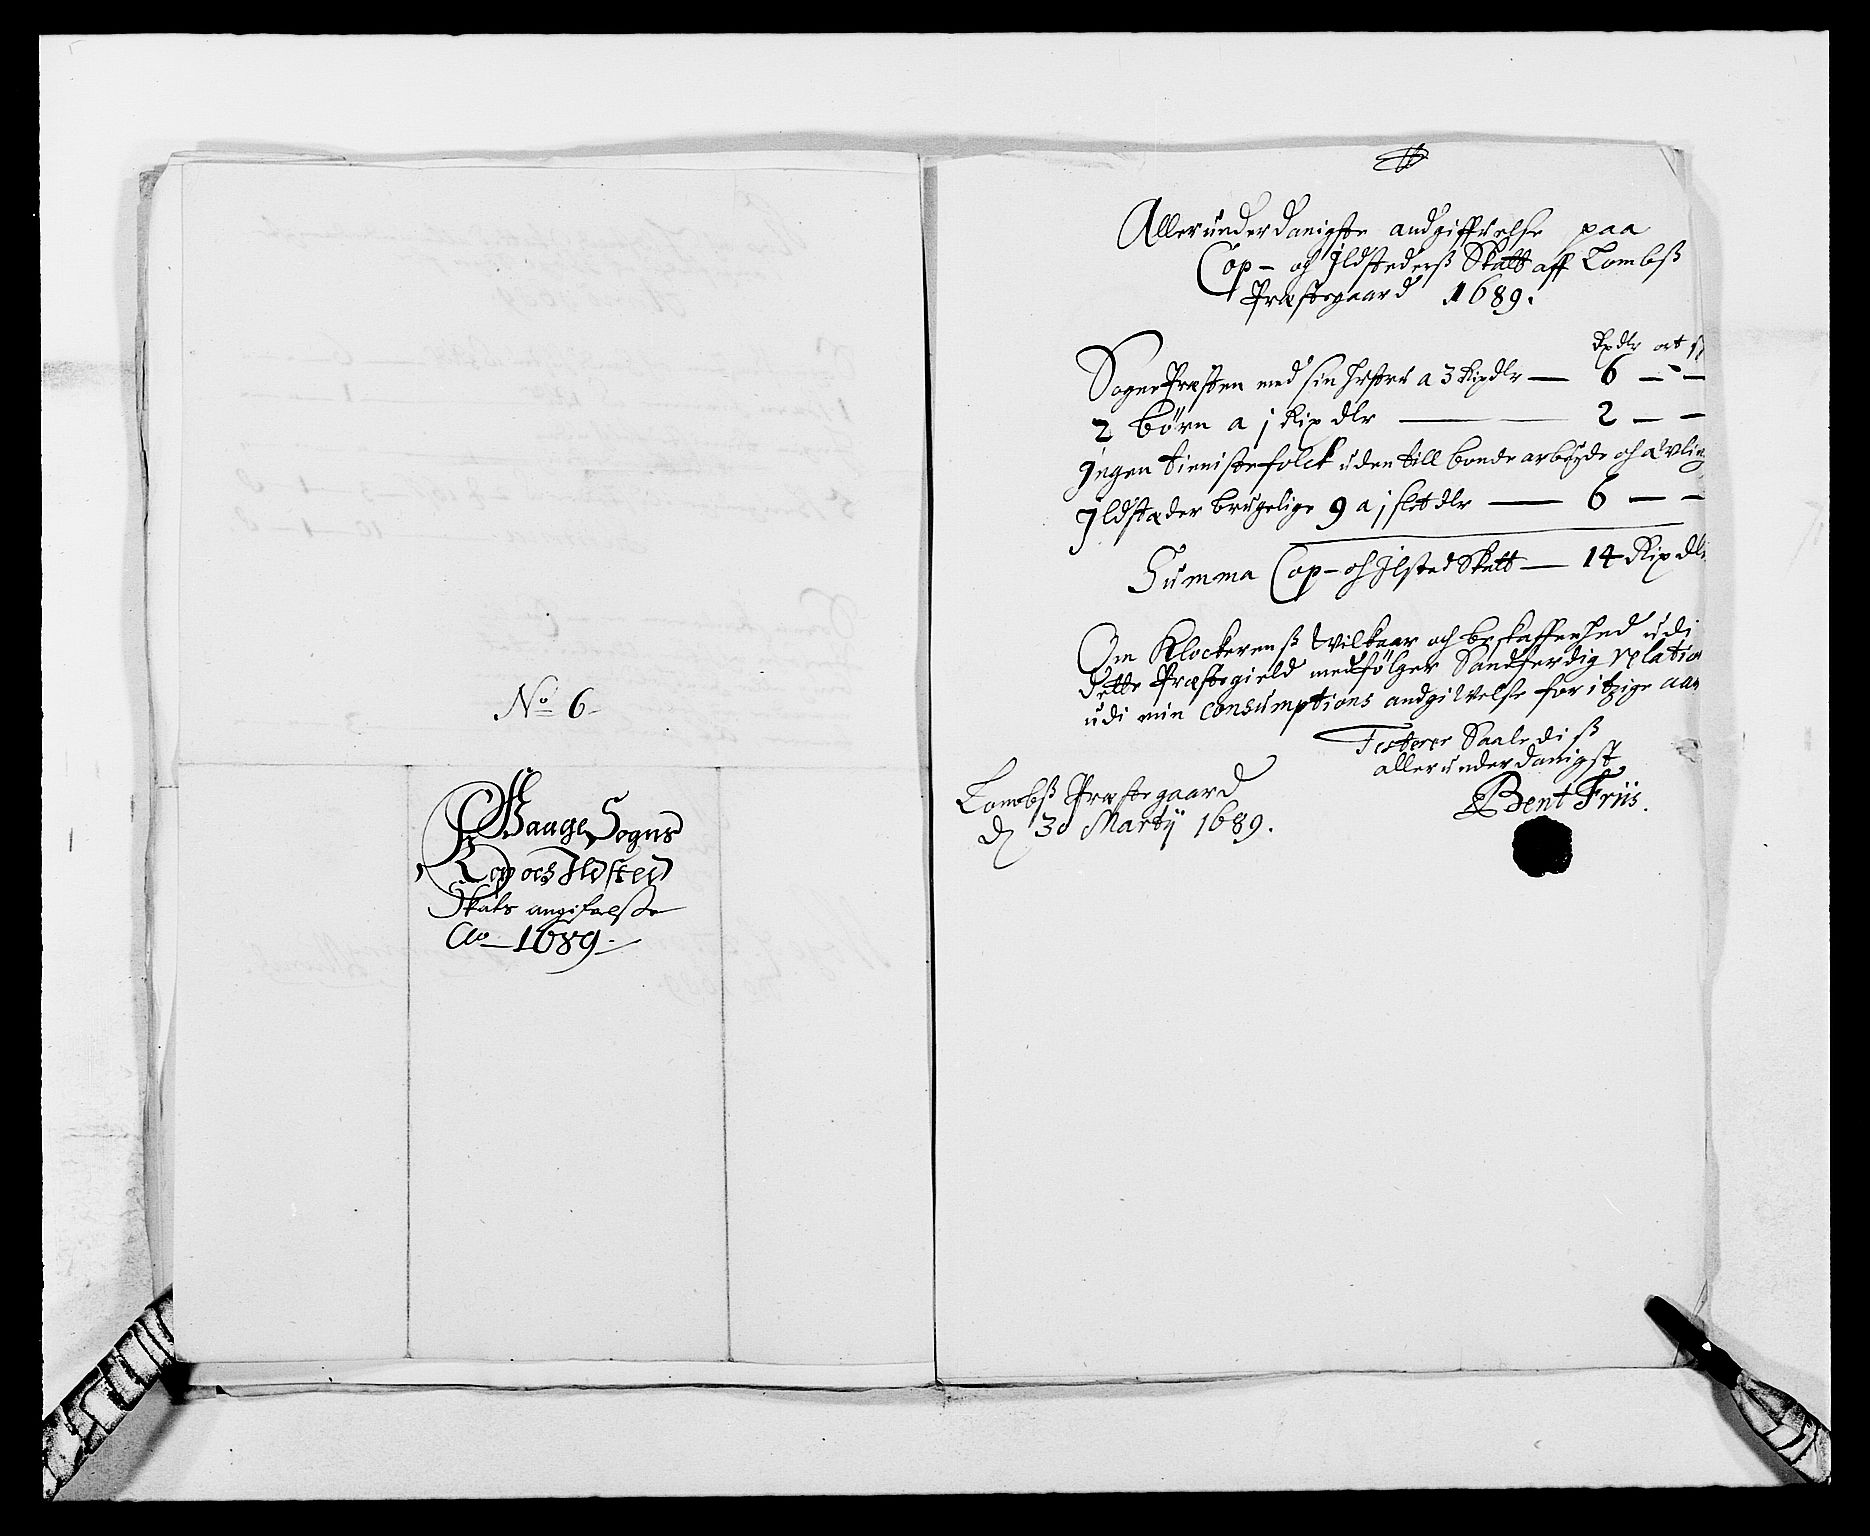 No 6
Waage Sogns
Cop och Ildsted
Skats angifvelsse
Ao 1689.
Allerunderdanigste andgiffvelse paa
Cop- och Ildstederß Skatt aff Lombß
Præstegaard 1689.
Rixdlr ort
SognePræsten med sin hustru a 3 Rixdlr — 6 — —
2 børn a j Rix dlr — 2 — —
Ingen tienistefolck uden till bonde arbeyde och avling
Ildstæder brugelige 9 a j slet dlr — 6 — —
Summa Cop- och Ilsted Skatt — 14 Rix dlr
Om Klockerenß Wilkaar och beskaffenhed udi
dette Præstegield medfølger Sandferdig relation
udi min consumptions andgivelse for itzige aar
Testerer Saalediß
allerunderdanigst
Bent Friis.
Lombß Præstegaard
d 30 Martij 1689.